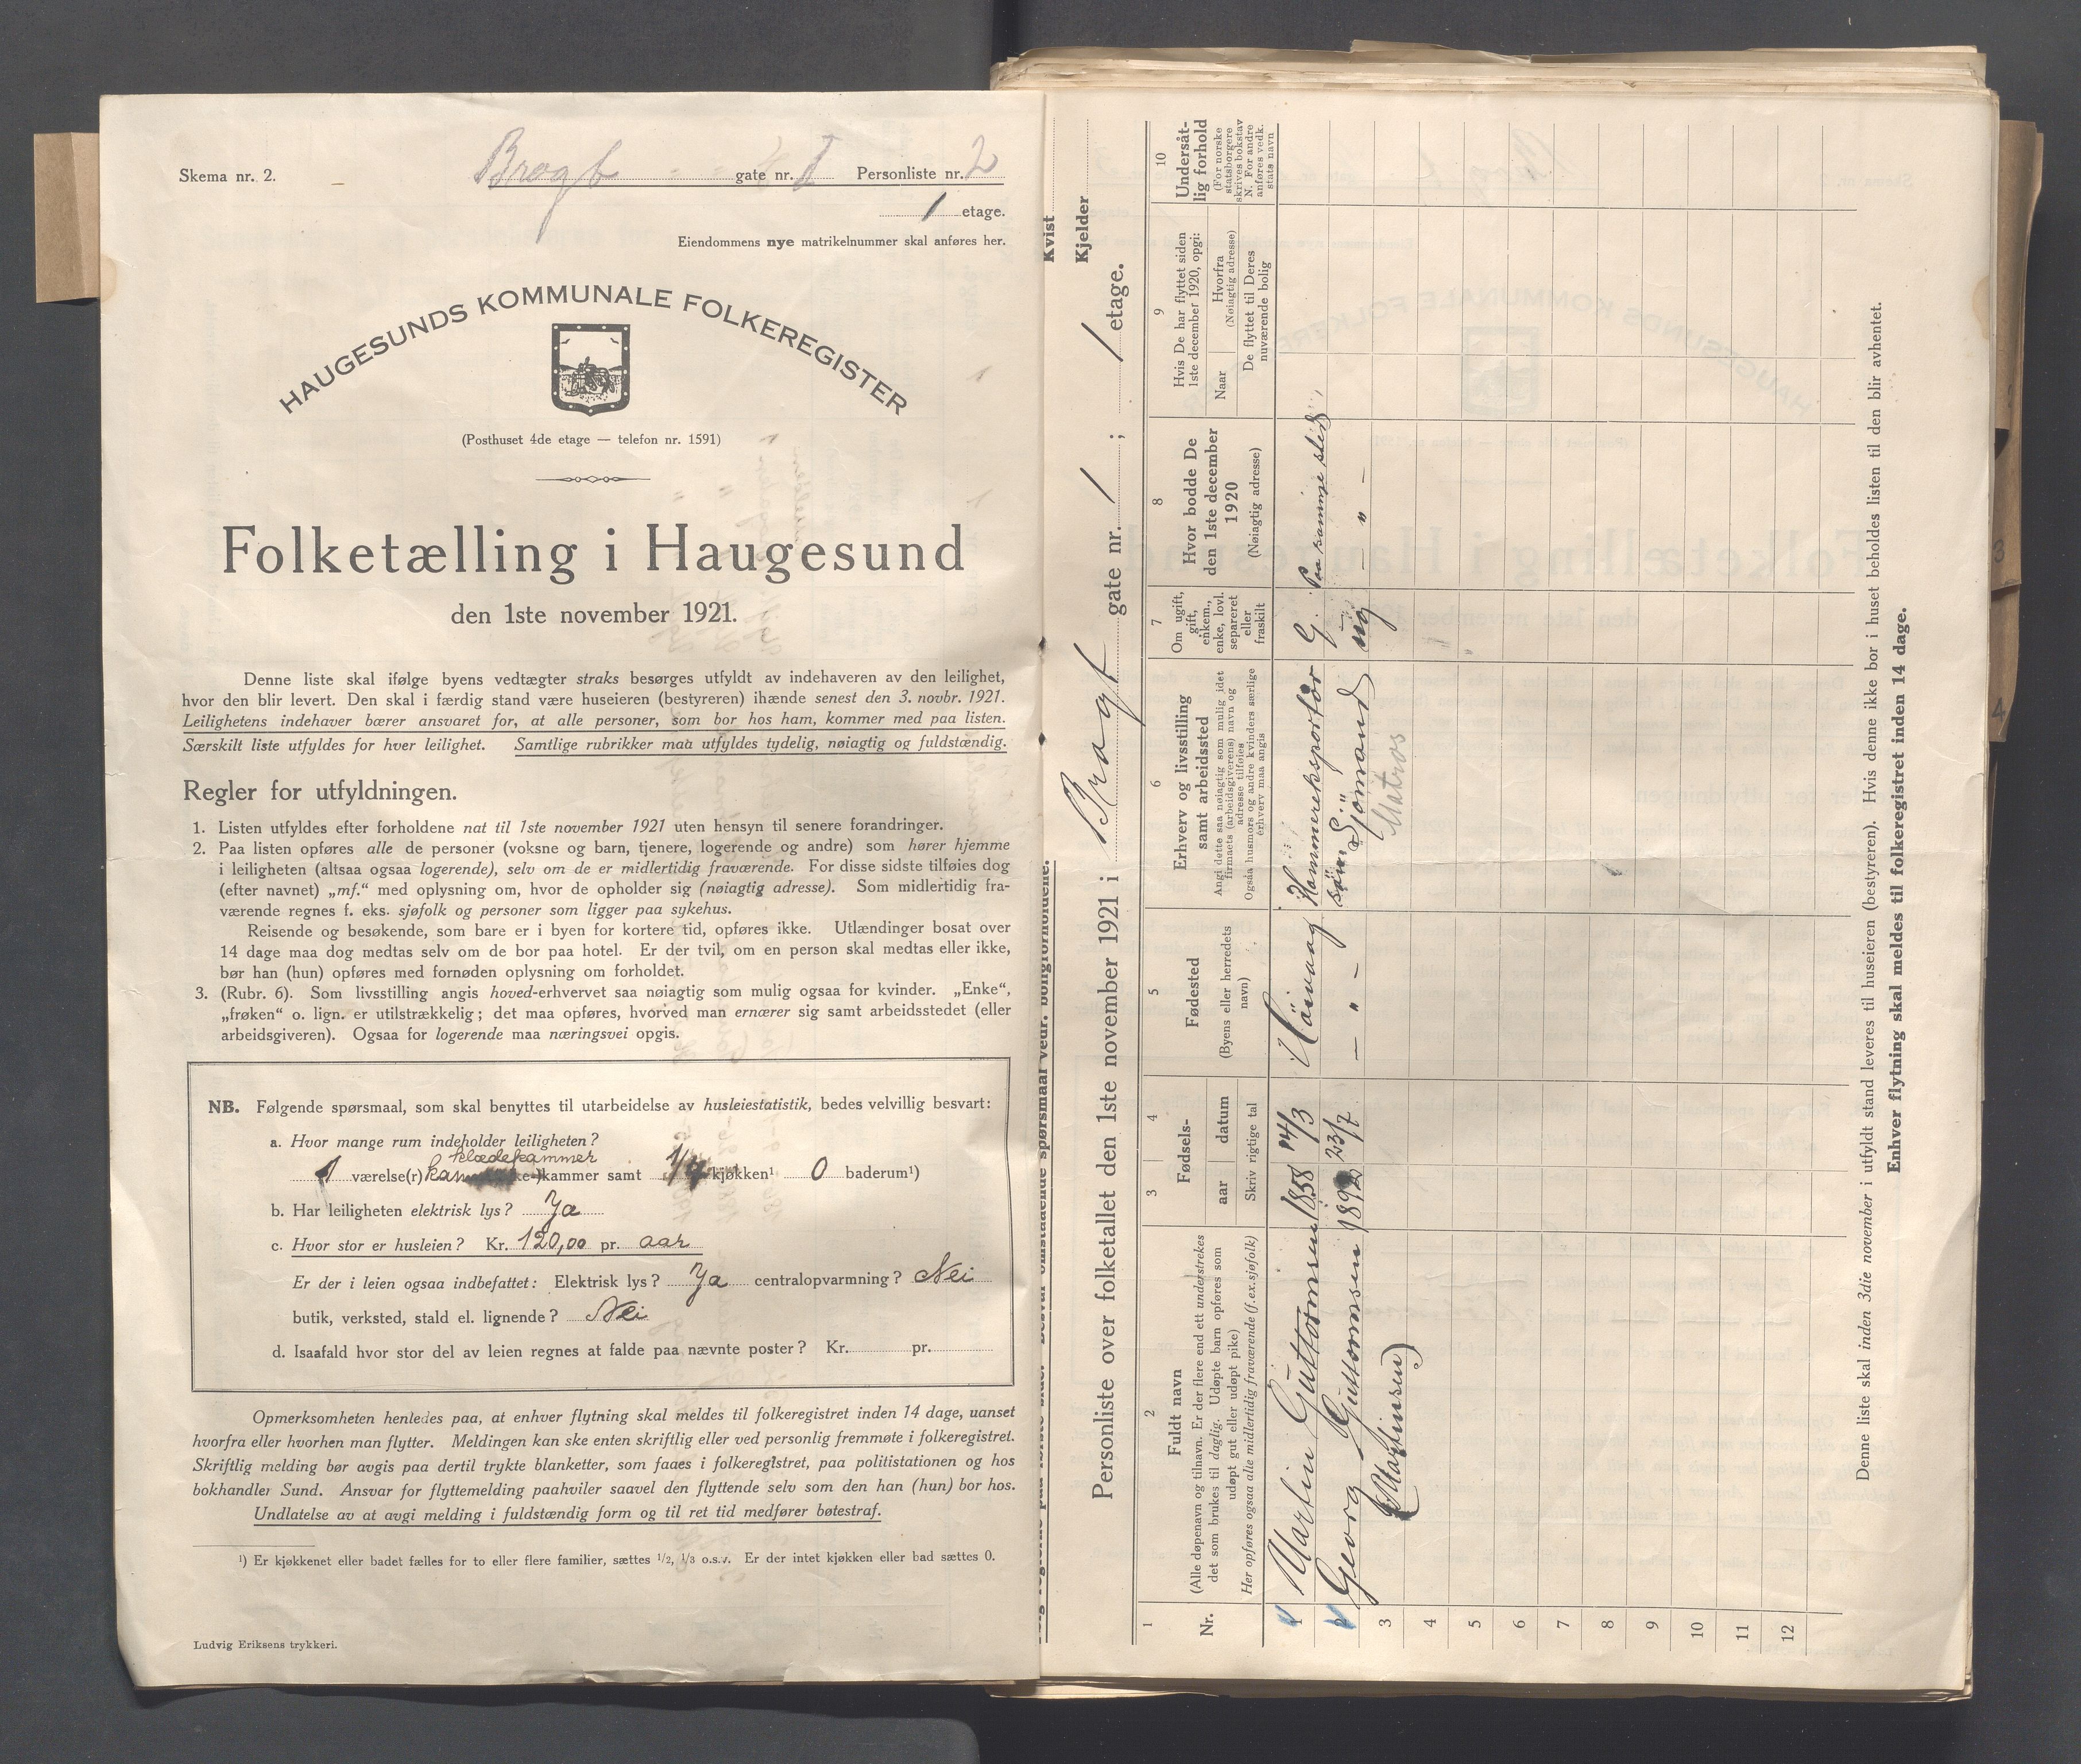 Skema nr. 2.
Bragt gate nr. 1 Personliste nr. 2
1 etage.
Eiendommens nye matrikelnummer skal anføres her.
HAUGESUNDS KOMMUNALE FOLKEREGISTER
(Posthuset 4de etage — telefon nr. 1591)
Folketælling i Haugesund
den 1ste november 1921.
Denne liste skal ifølge byens vedtægter straks besørges utfyldt av indehaveren av den leilighet,
hvor den blir levert. Den skal i færdig stand være huseieren (bestyreren) ihænde senest den 3. novbr. 1921.
Leilighetens indehaver bærer ansvaret for, at alle personer, som bor hos ham, kommer med paa listen.
Særskilt liste utfyldes for hver leilighet. Samtlige rubrikker maa utfyldes tydelig, nøiagtig og fuldstændig.
Regler for utfyldningen.
1. Listen utfyldes efter forholdene nat til 1ste november 1921 uten hensyn til senere forandringer.
2. Paa listen opføres alle de personer (voksne og barn, tjenere, logerende og andre) som hører hjemme
i leiligheten (altsaa ogsaa logerende), selv om de er midlertidig fraværende. For disse sidste tilføies dog
(efter navnet) „mf.“ med oplysning om, hvor de opholder sig (nøiagtig adresse). Som midlertidig fra-
værende regnes f. eks. sjøfolk og personer som ligger paa sykehus.
Reisende og besøkende, som bare er i byen for kortere tid, opføres ikke. Utlændinger bosat over
14 dage maa dog medtas selv om de bor paa hotel. Er der tvil, om en person skal medtas eller ikke,
bør han (hun) opføres med fornøden oplysning om forholdet.
3. (Rubr. 6). Som livsstilling angis hoved-erhvervet saa nøiagtig som mulig ogsaa for kvinder. „Enke“,
„frøken“ o. lign. er utilstrækkelig; det maa opføres, hvorved man ernærer sig samt arbeidsstedet (eller
arbeidsgiveren). Ogsaa for logerende maa næringsvei opgis.
NB. Følgende spørsmaal, som skal benyttes til utarbeidelse av husleiestatistik, bedes velvillig besvart:
a. Hvor mange rum indeholder leiligheten?
klædekammer
1 værelse(r) kammer samt 1/2 kjøkken¹ 0 baderum¹)
b. Har leiligheten elektrisk lys? Ja
c. Hvor stor er husleien? Kr. 120,00 pr. aar
Er der i leien ogsaa indbefattet: Elektrisk lys? Ja centralopvarmning? Nei
butik, verksted, stald el. lignende? Nei
d. Isaafald hvor stor del av leien regnes at falde paa nævnte poster? Kr. pr.
Opmerksomheten henledes paa, at enhver flytning skal meldes til folkeregistret inden 14 dage, uanset
hvorfra eller hvorhen man flytter. Meldingen kan ske enten skriftlig eller ved personlig fremmøte i folkeregistret.
Skriftlig melding bør avgis paa dertil trykte blanketter, som faaes i folkeregistret, paa politistationen og hos
bokhandler Sund. Ansvar for flyttemelding paahviler saavel den flyttende selv som den han (hun) bor hos.
Undlatelse av at avgi melding i fuldstændig form og til ret tid medfører bøtestraf.
¹) Er kjøkkenet eller badet fælles for to eller flere familier, sættes 1/2, 1/3 o.s.v. Er der intet kjøkken eller bad sættes 0.
Ludvig Eriksens trykkeri.
Kvist
Kjelder
Personliste over folketallet den 1ste november 1921 i Bragt gate nr. 1 ; 1 etage.
1 2 3 4 5 6 7 8 9 10
Nr.
Fuldt navn
(Alle døpenavn og tilnavn. Er der flere end ett understrekes
det som brukes til daglig. Udøpte barn opføres som
udøpt gut eller udøpt pike)
Her opføres ogsaa alle midlertidig fraværende (f.ex.sjøfolk)
Fødsels-
aar datum
Skriv rigtige tal
Fødested
(Byens eller herredets
navn)
Erhverv og livsstilling
samt arbeidssted
Angi dette saa nøiagtig som mulig idet
firmaets (arbeidsgiverens) navn og
adresse tilføies
Ogsåa husmors og andre kvinders særlige
erhverv maa angis
Om ugift,
gift,
enkem.,
enke, lovl.
separeret
eller
fraskilt
Hvor bodde De
den 1ste december
1920
(Nøiagtig adresse)
Hvis De har flyttet siden
1ste december 1920, opgi:
Naar
Hvorfra
(Nøiagtig adresse)
De flyttet til Deres
nuværende bolig
Undersåt-
lig forhold
(For norske
statsborgere
skrives bokstav
N. For andre
anføres vedk.
stats navn
1 Martin Guttormsen 1858 14/3 Hammereksportør G. Paa samme sted
2 Georg Guttormsen 1892 23/7 — „ — søn. Sjømand ug — „ —
3 (Martinsen) Matros
4
5
6
7
8
9
10
11
12
Denne liste skal inden 3die november i utfyldt stand leveres til huseieren (bestyreren). Hvis denne ikke bor i huset beholdes listen til den blir avhentet.
Enhver flytning skal meldes til folkeregistret inden 14 dage.